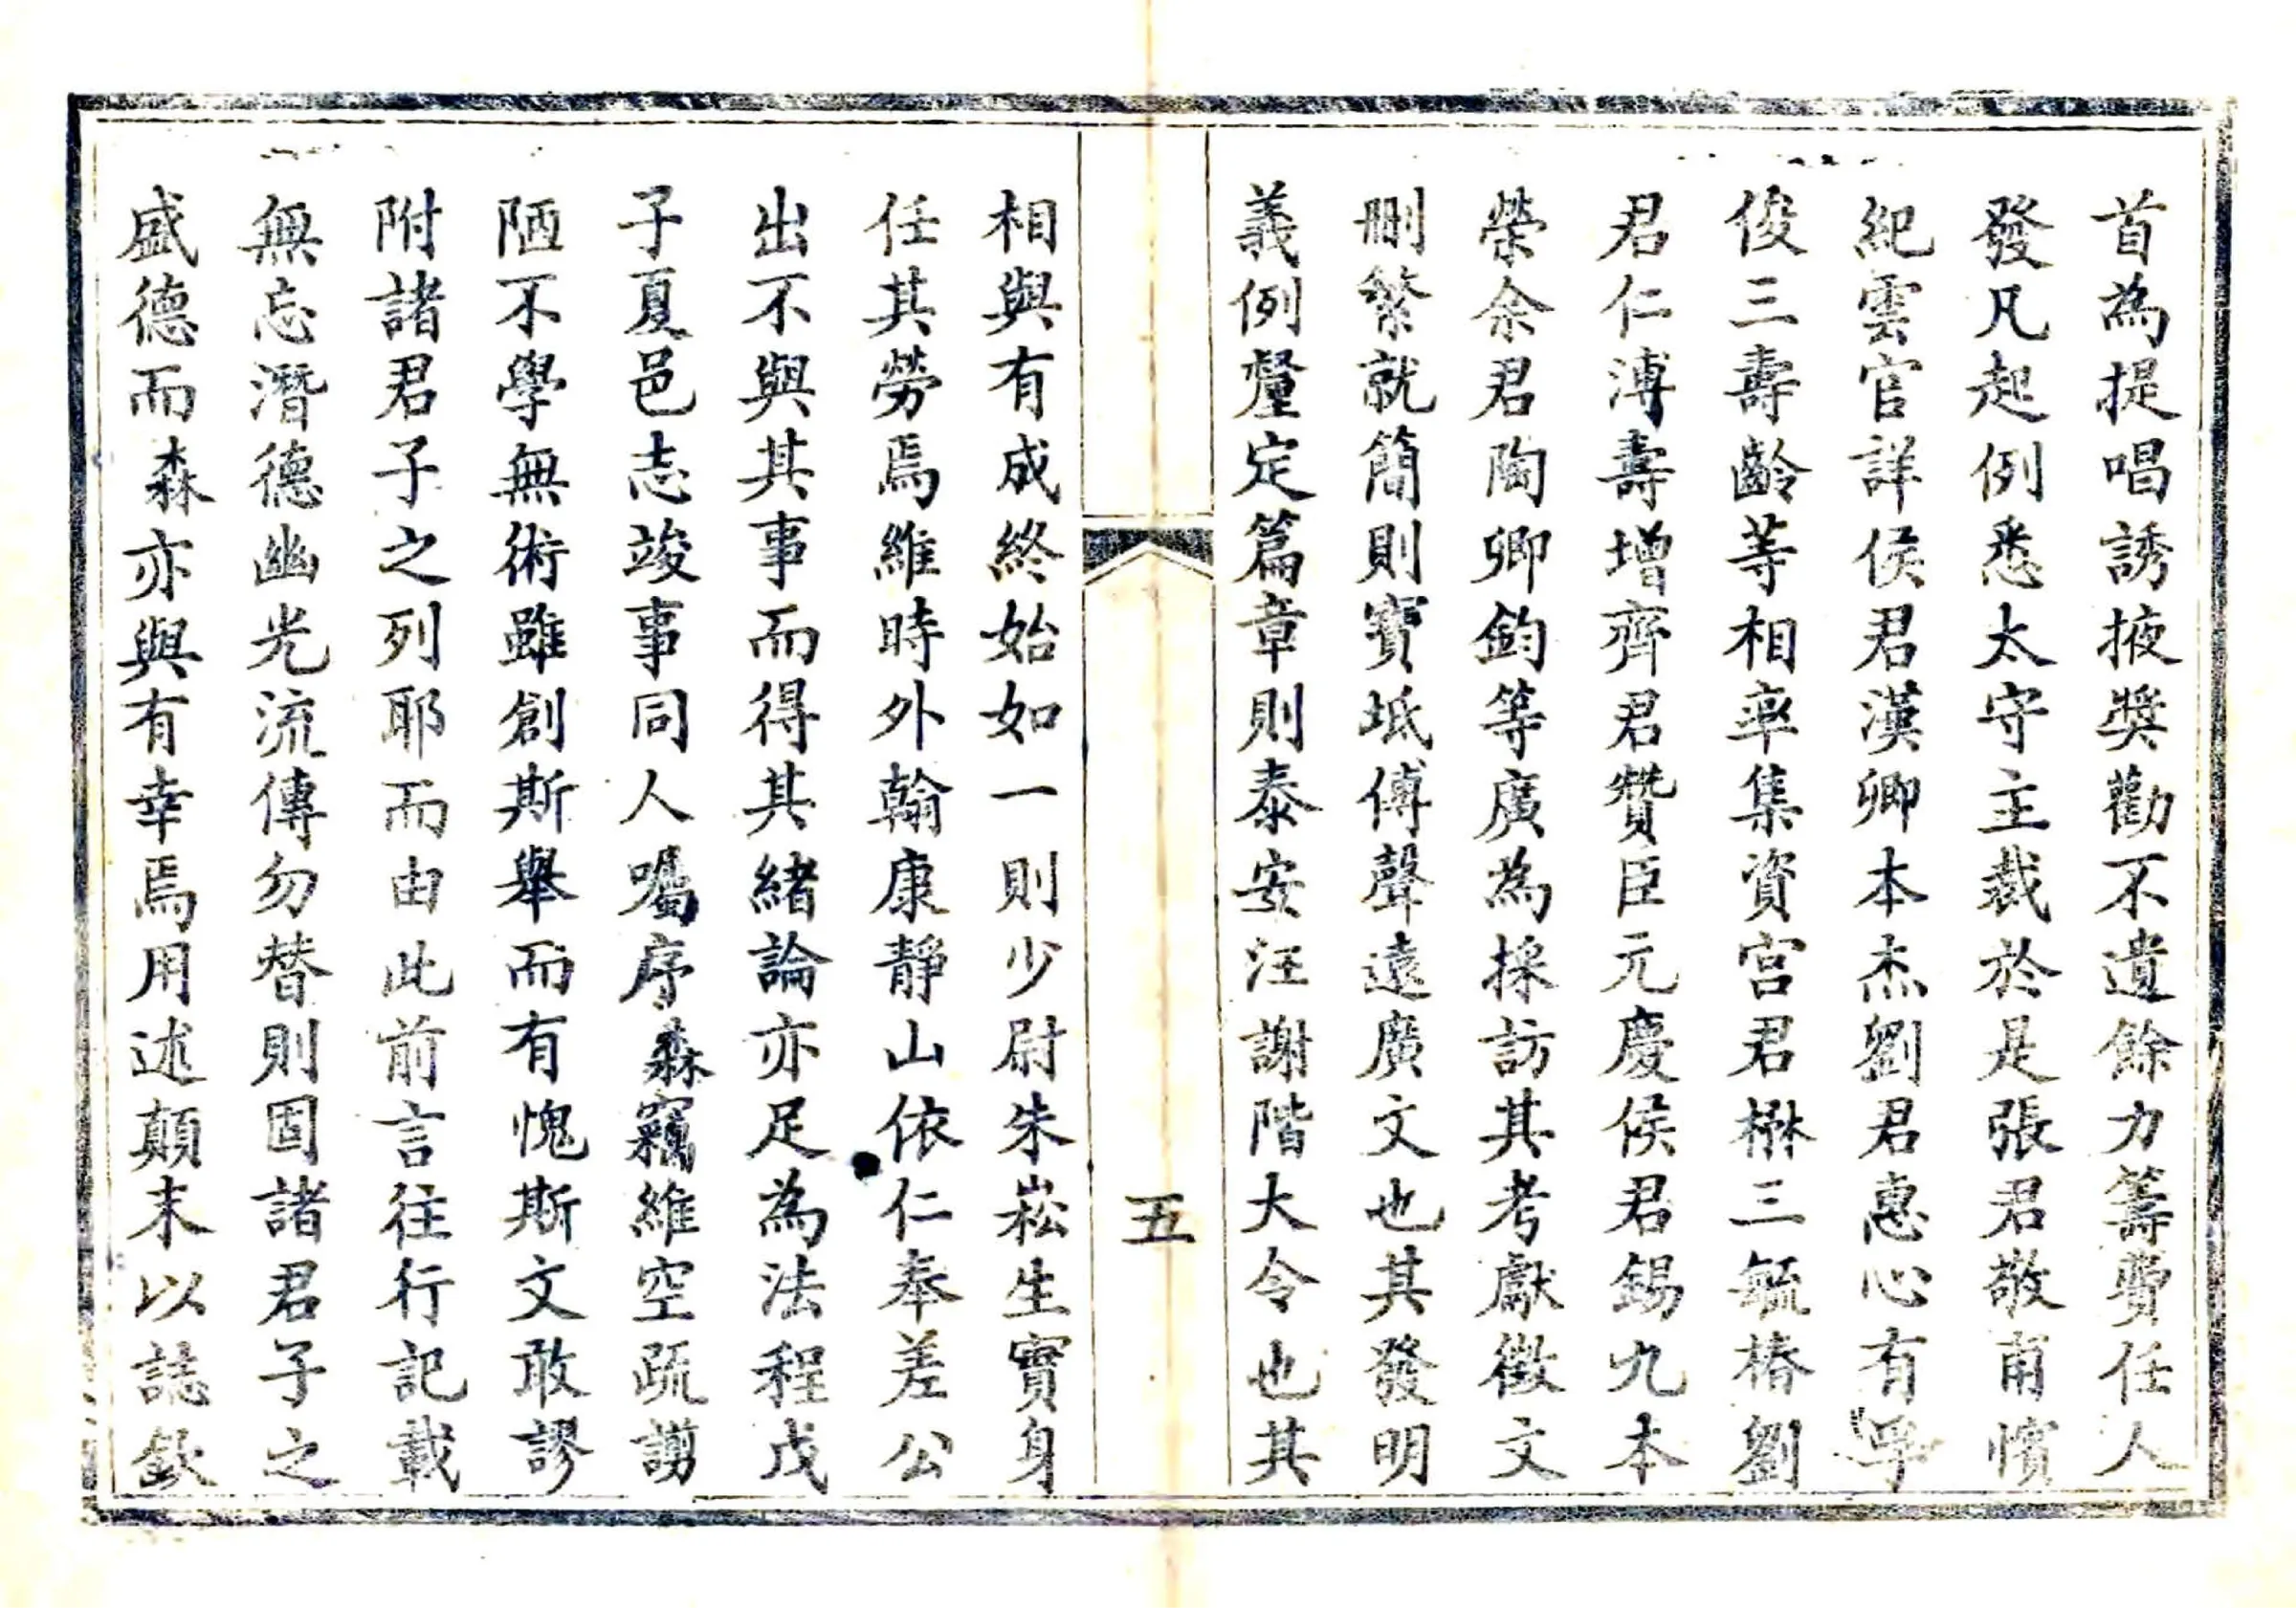 首為提唱誘掖獎勸不遺餘力籌費任人
發凡起例悉太守主裁於是張君敬甫儐
紀雲官詳侯君漢卿本杰劉君惠心有孚
俊三壽齡等相率集資宮君楙三毓椿劉
君仁溥壽增齊君贊臣元慶侯君錫九本
榮余君陶卿鈞等廣為採訪其考獻徵文
刪繁就簡則寶坻傅聲遠廣文也其發明
義例釐定篇章則泰安汪謝階大令也其
五
相與有成終始如一則少尉朱崧生實身
任其勞焉維時外翰康靜山依仁奉差公
出不與其事而得其緒論亦足為法程戊
子夏邑志竣事同人囑序森竊維空疏謭
陋不學無術雖創斯舉而有愧斯文敢謬
附諸君子之列耶而由此前言往行記載
無忘潛德幽光流傳勿替則固諸君子之
盛德而森亦與有幸焉用述顛末以誌欽